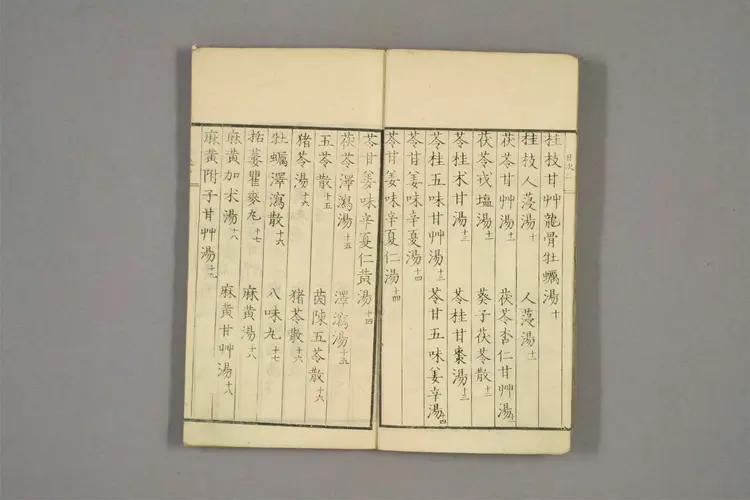 目次
桂枝甘艸龍骨牡蠣湯 十
桂枝人蓡湯 十 人蓡湯 十一
茯苓甘艸湯 十一 茯苓杏仁甘艸湯
茯苓戎塩湯 十一 葵子茯苓散 十二
苓桂朮甘湯 十三 苓桂甘棗湯 十三
苓桂五味甘艸湯 十三 苓甘五味姜辛湯 十四
苓甘姜味辛夏湯 十四
苓甘姜味辛夏仁湯 十四
苓甘姜味辛夏仁黄湯 十四
茯苓澤瀉湯 十五 澤瀉湯 十五
五苓散 十五 茵陳五苓散 十六
猪苓湯 十六 猪苓散 十六
牡蠣澤瀉散 十六 八味丸 十七
括蔞瞿麥丸 十七 麻黄湯 十八
麻黄加朮湯 十八 麻黄甘艸湯 十八
麻黄附子甘艸湯 十九